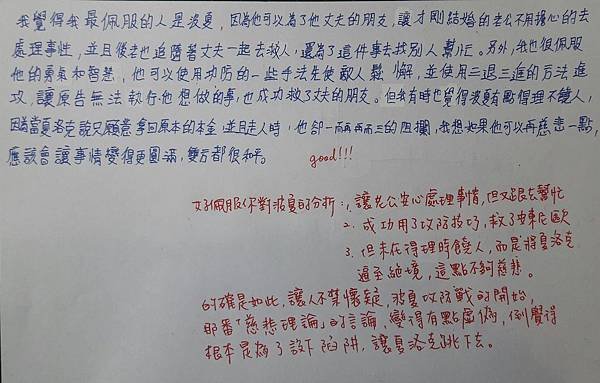 我覺得我最佩服的人是波夏，因為他可以為了他丈夫的朋友，讓才剛結婚的老公不用擔心的去
處理事性，並且後老也追隨著丈夫一起去救人，還為了這件事去找別人幫忙。另外，我也很佩服
他的勇氣和智慧，他可以使用功防的一些手法先使敵人鬆懈，並使用二退三進的方法進
攻，讓原告無法執行他想做的事，也成功救了丈夫的朋友。但我有時也覺得波夏有點得理不饒人，
因為當夏洛克說只願意拿回原本的本金並且走人時，他卻一而再再而三的阻攔，我想如果他可以再慈悲一點，
應該會讓事情變得更圓滿，雙方都很和平。 good!!!
好佩服你對波夏的分析：1. 讓老公安心處理事情，但又跟去幫忙
2. 成功用了攻防技巧，救了安東尼歐
3. 但未在得理時饒人，而是將夏洛克
逼至絕境，這點不夠慈悲。
的確是如此，讓人不禁懷疑，波夏攻防戰的開始，
那番「慈悲理論」的言論，變得有點虛偽，倒覺得
根本是為了設下陷阱，讓夏洛克跳下去。